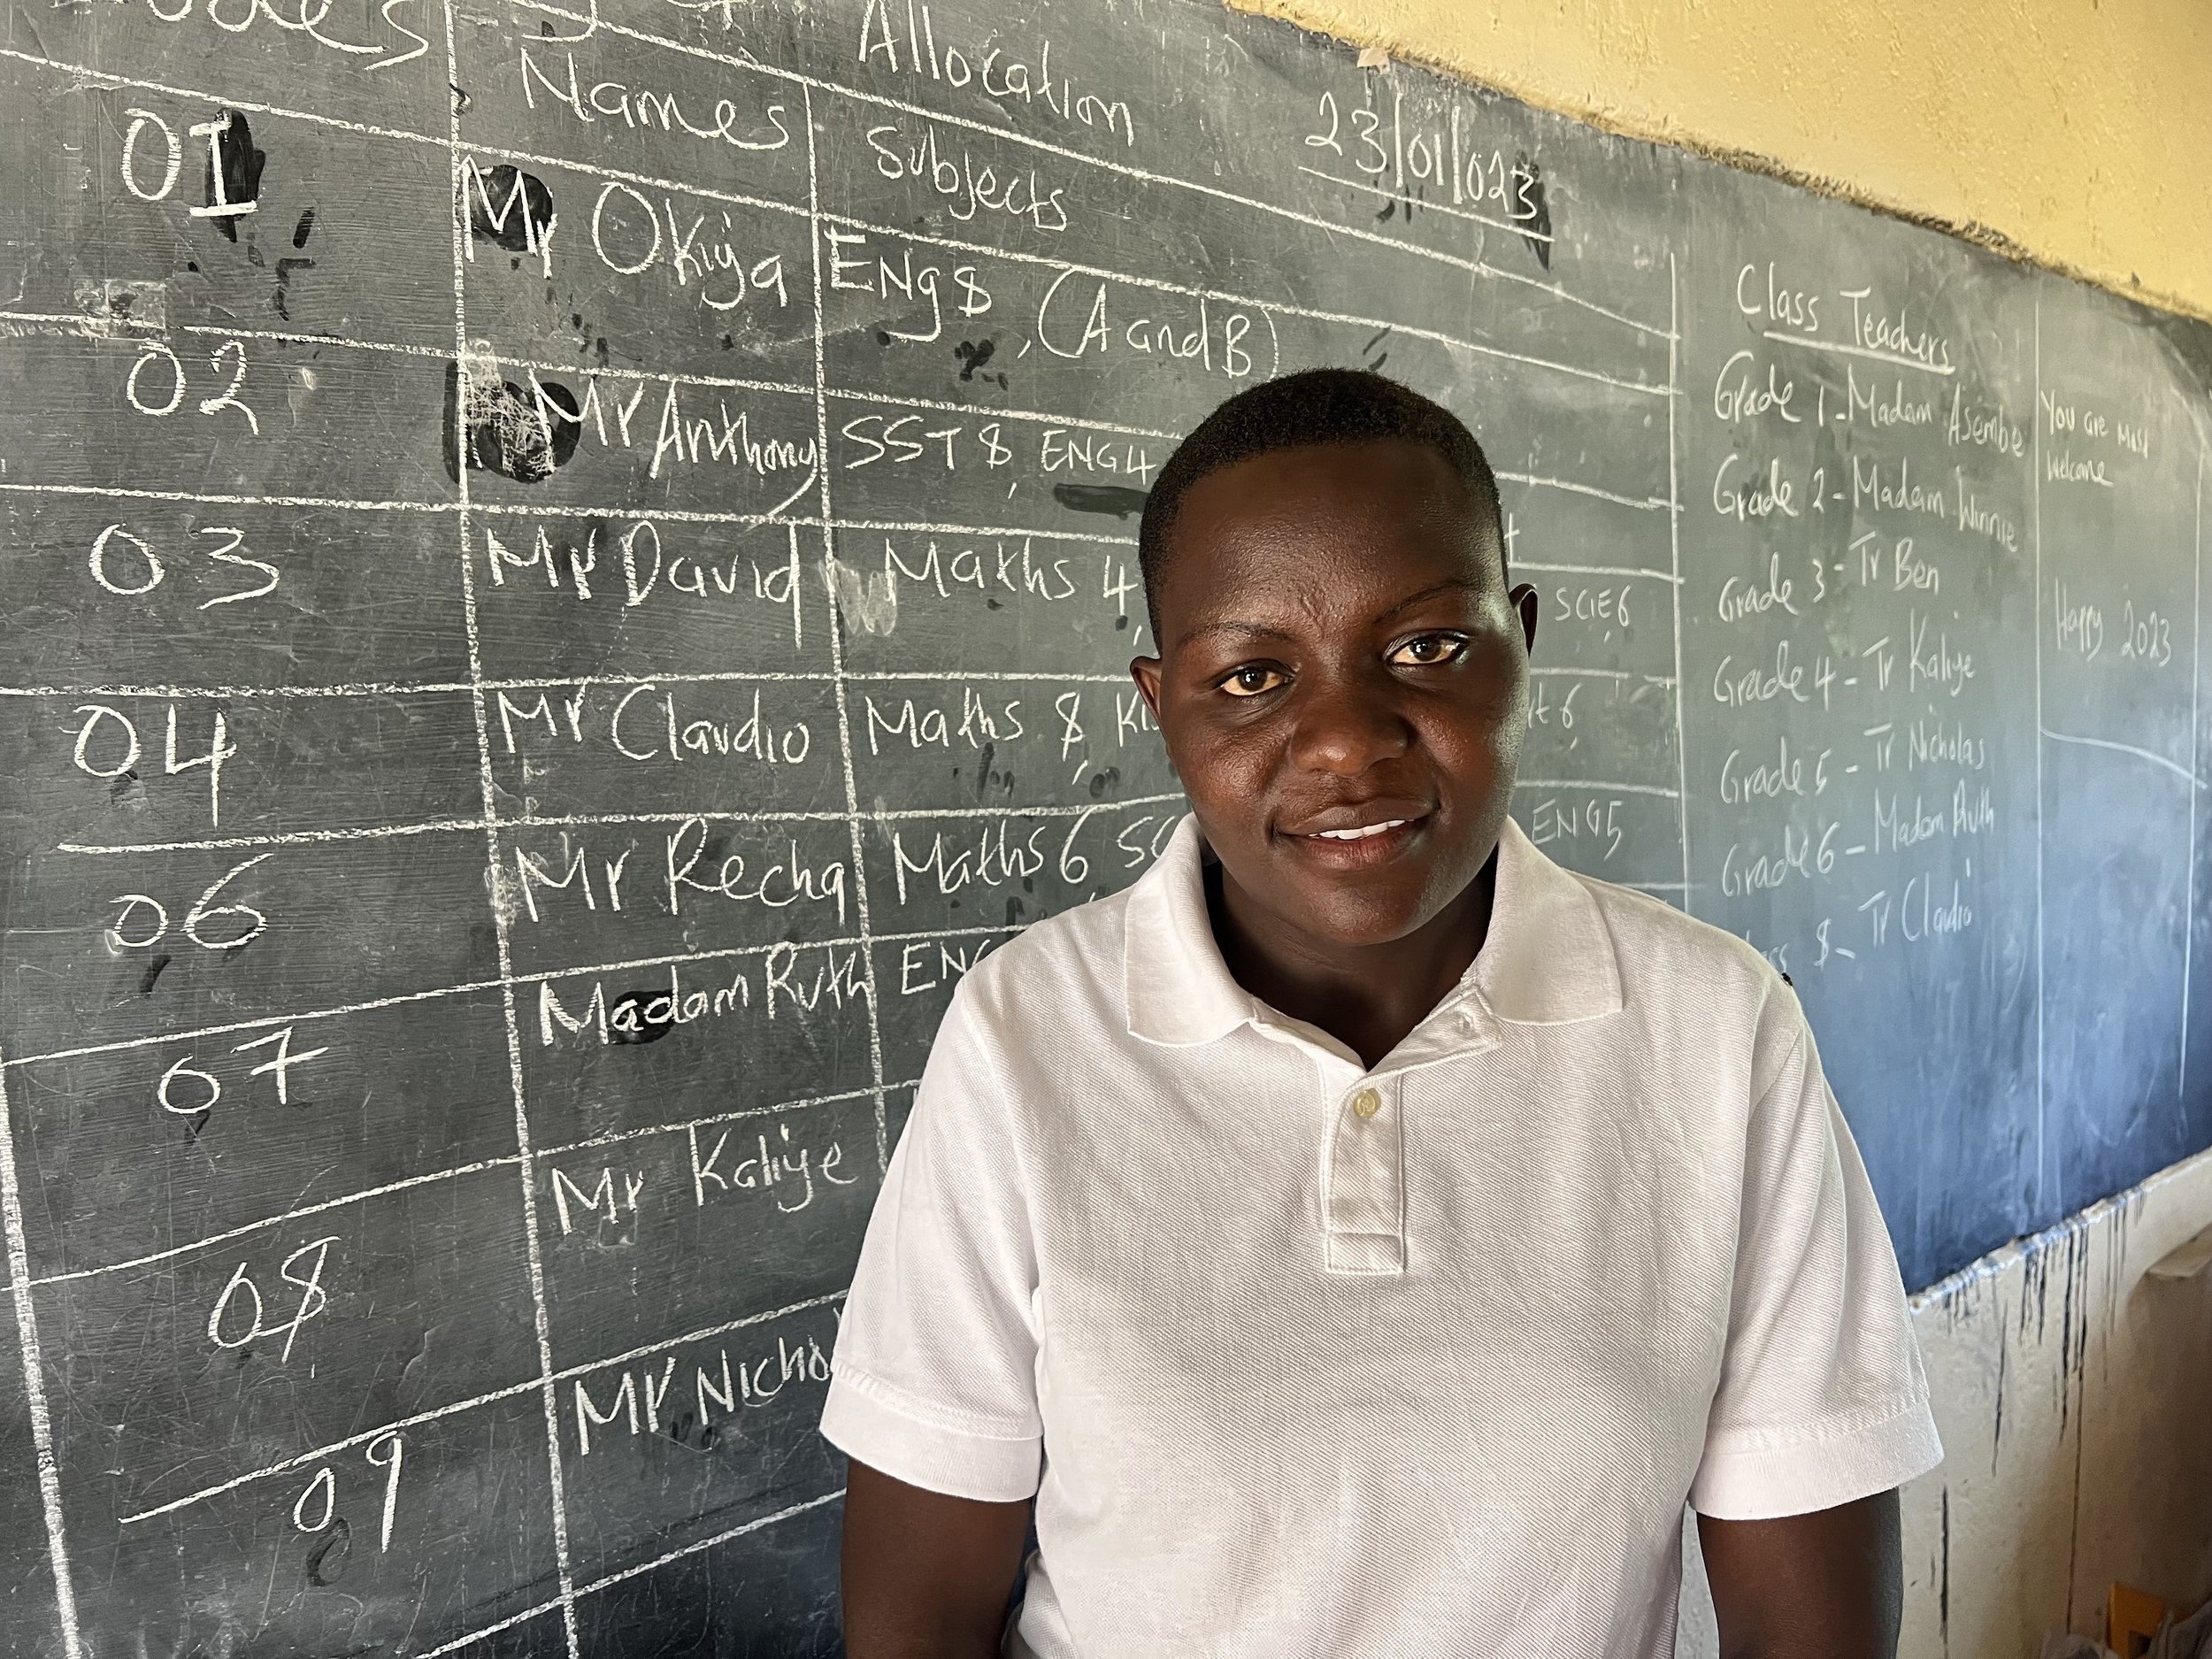 Allocation
23/01/023
Names Subjects
01 Mr Okiya ENG 8, (A and B)
02 Mr Anthony SST 8, ENG4
03 Mr David Maths 4, SCIE 6,
04 Mr Claudio Maths 8, 6,
06 Mr Recha Maths 6 ENG5
07 Madam Ruth ENG
08 Mr Kaliye
09 Mr
Class Teachers
Grade 1 - Madam Asembe
Grade 2 - Madam Winnie
Grade 3 - Tr Ben
Grade 4 - Tr Kaliye
Grade 5 - Tr Nicholas
Grade 6 - Madam Ruth
8 - Tr Claudio
You are Most
Welcome
Happy 2023